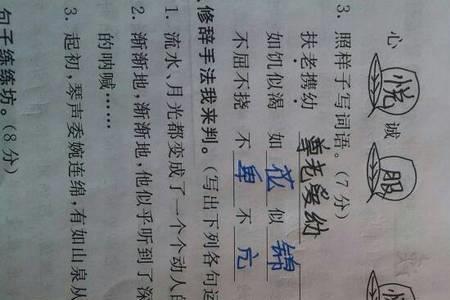 心 悦 诚 服
3. 照样子写词语。(7分)
扶老携幼 尊老爱幼
如饥似渴 如 花 似 锦
不屈不挠 不 卑 不 亢
修辞手法我来判。(写出下列各句运
1. 流水、月光都变成了一个个动人的
2. 渐渐地,渐渐地,他似乎听到了深
的呐喊……
3. 起初,琴声委婉连绵,有如山泉从
句子练练坊。(8分)